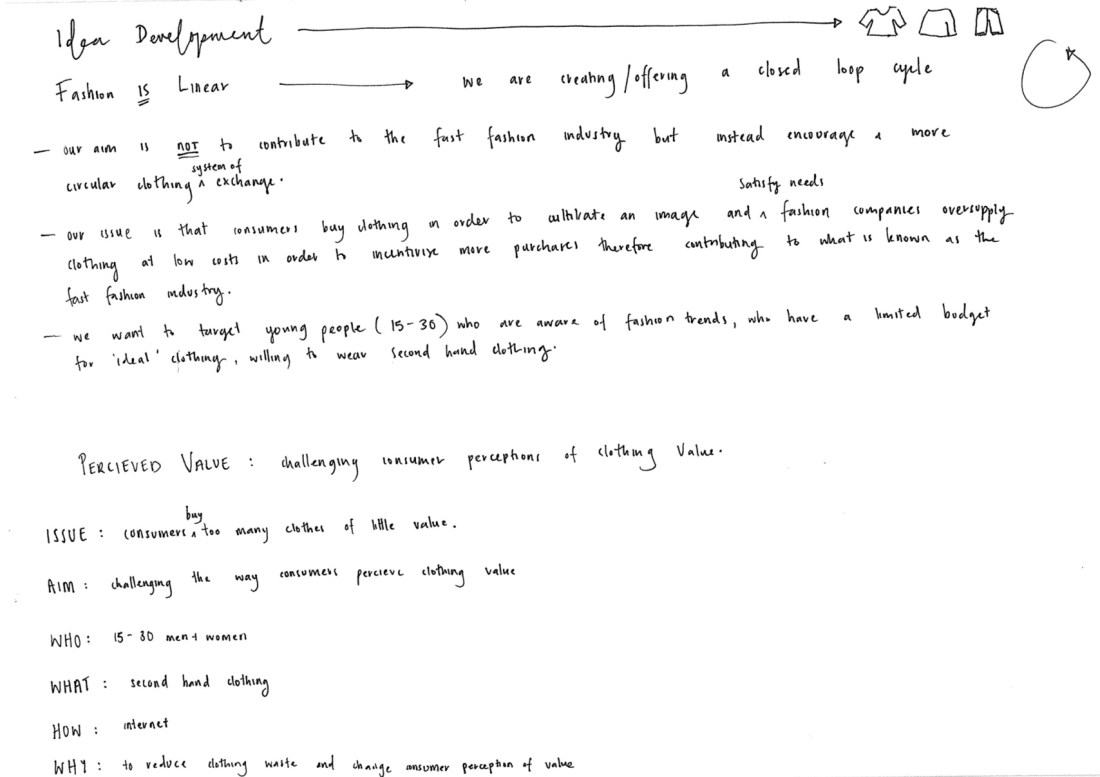 Idea Development
Fashion IS Linear we are creating/offering a closed loop cycle
– our aim is NOT to contribute to the fast fashion industry but instead encourage a more
circular clothing system of exchange.
– our issue is that consumers buy clothing in order to cultivate an image and satisfy needs fashion companies oversupply
clothing at low costs in order to incentivise more purchases therefore contributing to what is known as the
fast fashion industry.
– we want to target young people (15-30) who are aware of fashion trends, who have a limited budget
for 'ideal' clothing, willing to wear second hand clothing.
PERCIEVED VALUE : challenging consumer perceptions of clothing value.
ISSUE : consumers buy too many clothes of little value.
AIM : challenging the way consumers percieve clothing value
WHO : 15-30 men + women
WHAT : second hand clothing
HOW : internet
WHY : to reduce clothing waste and change consumer perception of value